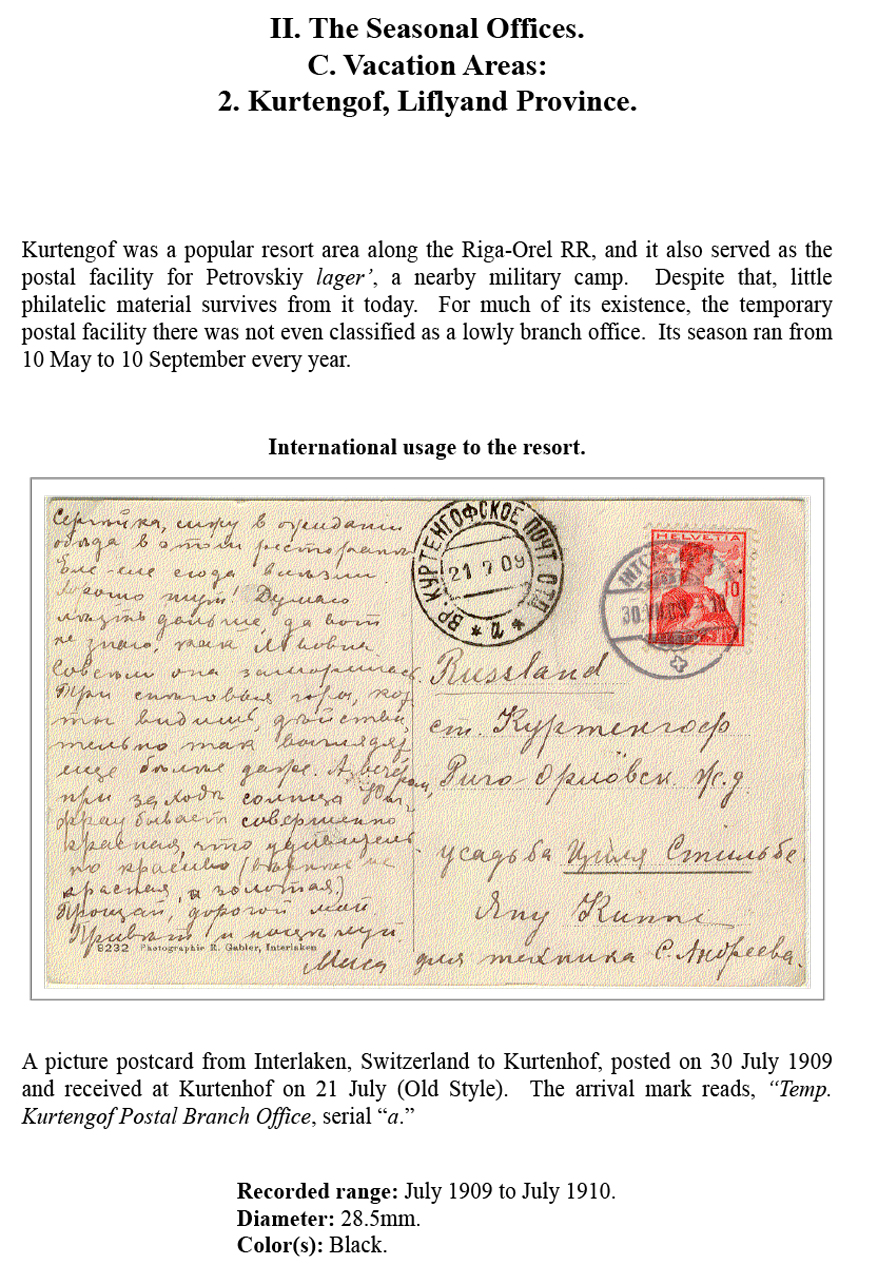 II. The Seasonal Offices.
C. Vacation Areas:
2. Kurtengof, Liflyand Province.
Kurtengof was a popular resort area along the Riga-Orel RR, and it also served as the
postal facility for Petrovskiy lager’, a nearby military camp. Despite that, little
philatelic material survives from it today. For much of its existence, the temporary
postal facility there was not even classified as a lowly branch office. Its season ran from
10 May to 10 September every year.
International usage to the resort.
Сергуйка, сижу в ожидании
обѣда в этом ресторанѣ
Еле-еле сюда влѣзли.
Хорошо тут! Думаю
лѣзть дальше, да вот
не знаю, как Львовна
Совсѣм она заморилась.
При снѣговыя горы, кот
ты видишь, дѣйстви
тельно так выглядят
еще болѣе даже. А вечером,
при заходѣ солнца Юнг
фрау бывает совершенно
красная, что удивитель
но красиво (
красная, а золотая)
Прощай, дорогой мой
Привѣт и поцѣлуй.
8232 Photographie R. Gabler, Interlaken
Миса
ВР. КУРТЕНГОФСКОЕ ПОЧТ. ОТД.
21 7 09
* а *
HELVETIA
10
30.VII.09
Russland
ст. Куртенгоф
Риго-Орловск ж.д.
усадьба Цѣля Стильбе
Яну Киппе
для техника С. Андреева.
A picture postcard from Interlaken, Switzerland to Kurtenhof, posted on 30 July 1909
and received at Kurtenhof on 21 July (Old Style). The arrival mark reads, “Temp.
Kurtengof Postal Branch Office, serial “a.”
Recorded range: July 1909 to July 1910.
Diameter: 28.5mm.
Color(s): Black.